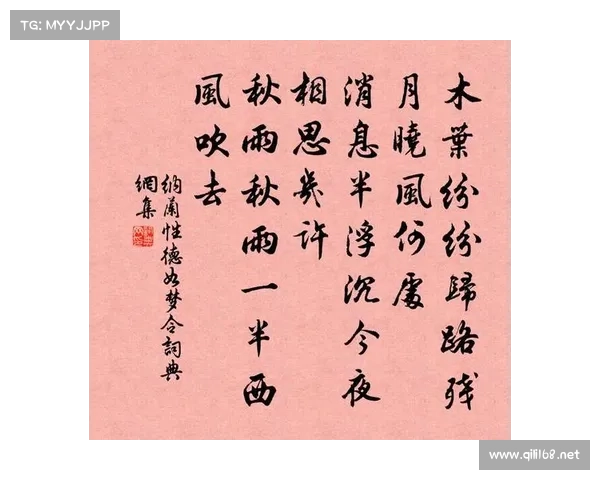 TG: MYYJJPP
木葉紛紛歸路殘
月曉風何處
消息半浮沉今夜
相思幾許
秋雨秋雨一半西
風吹去
納蘭性德如梦令詞典
網集
www.qili168.net